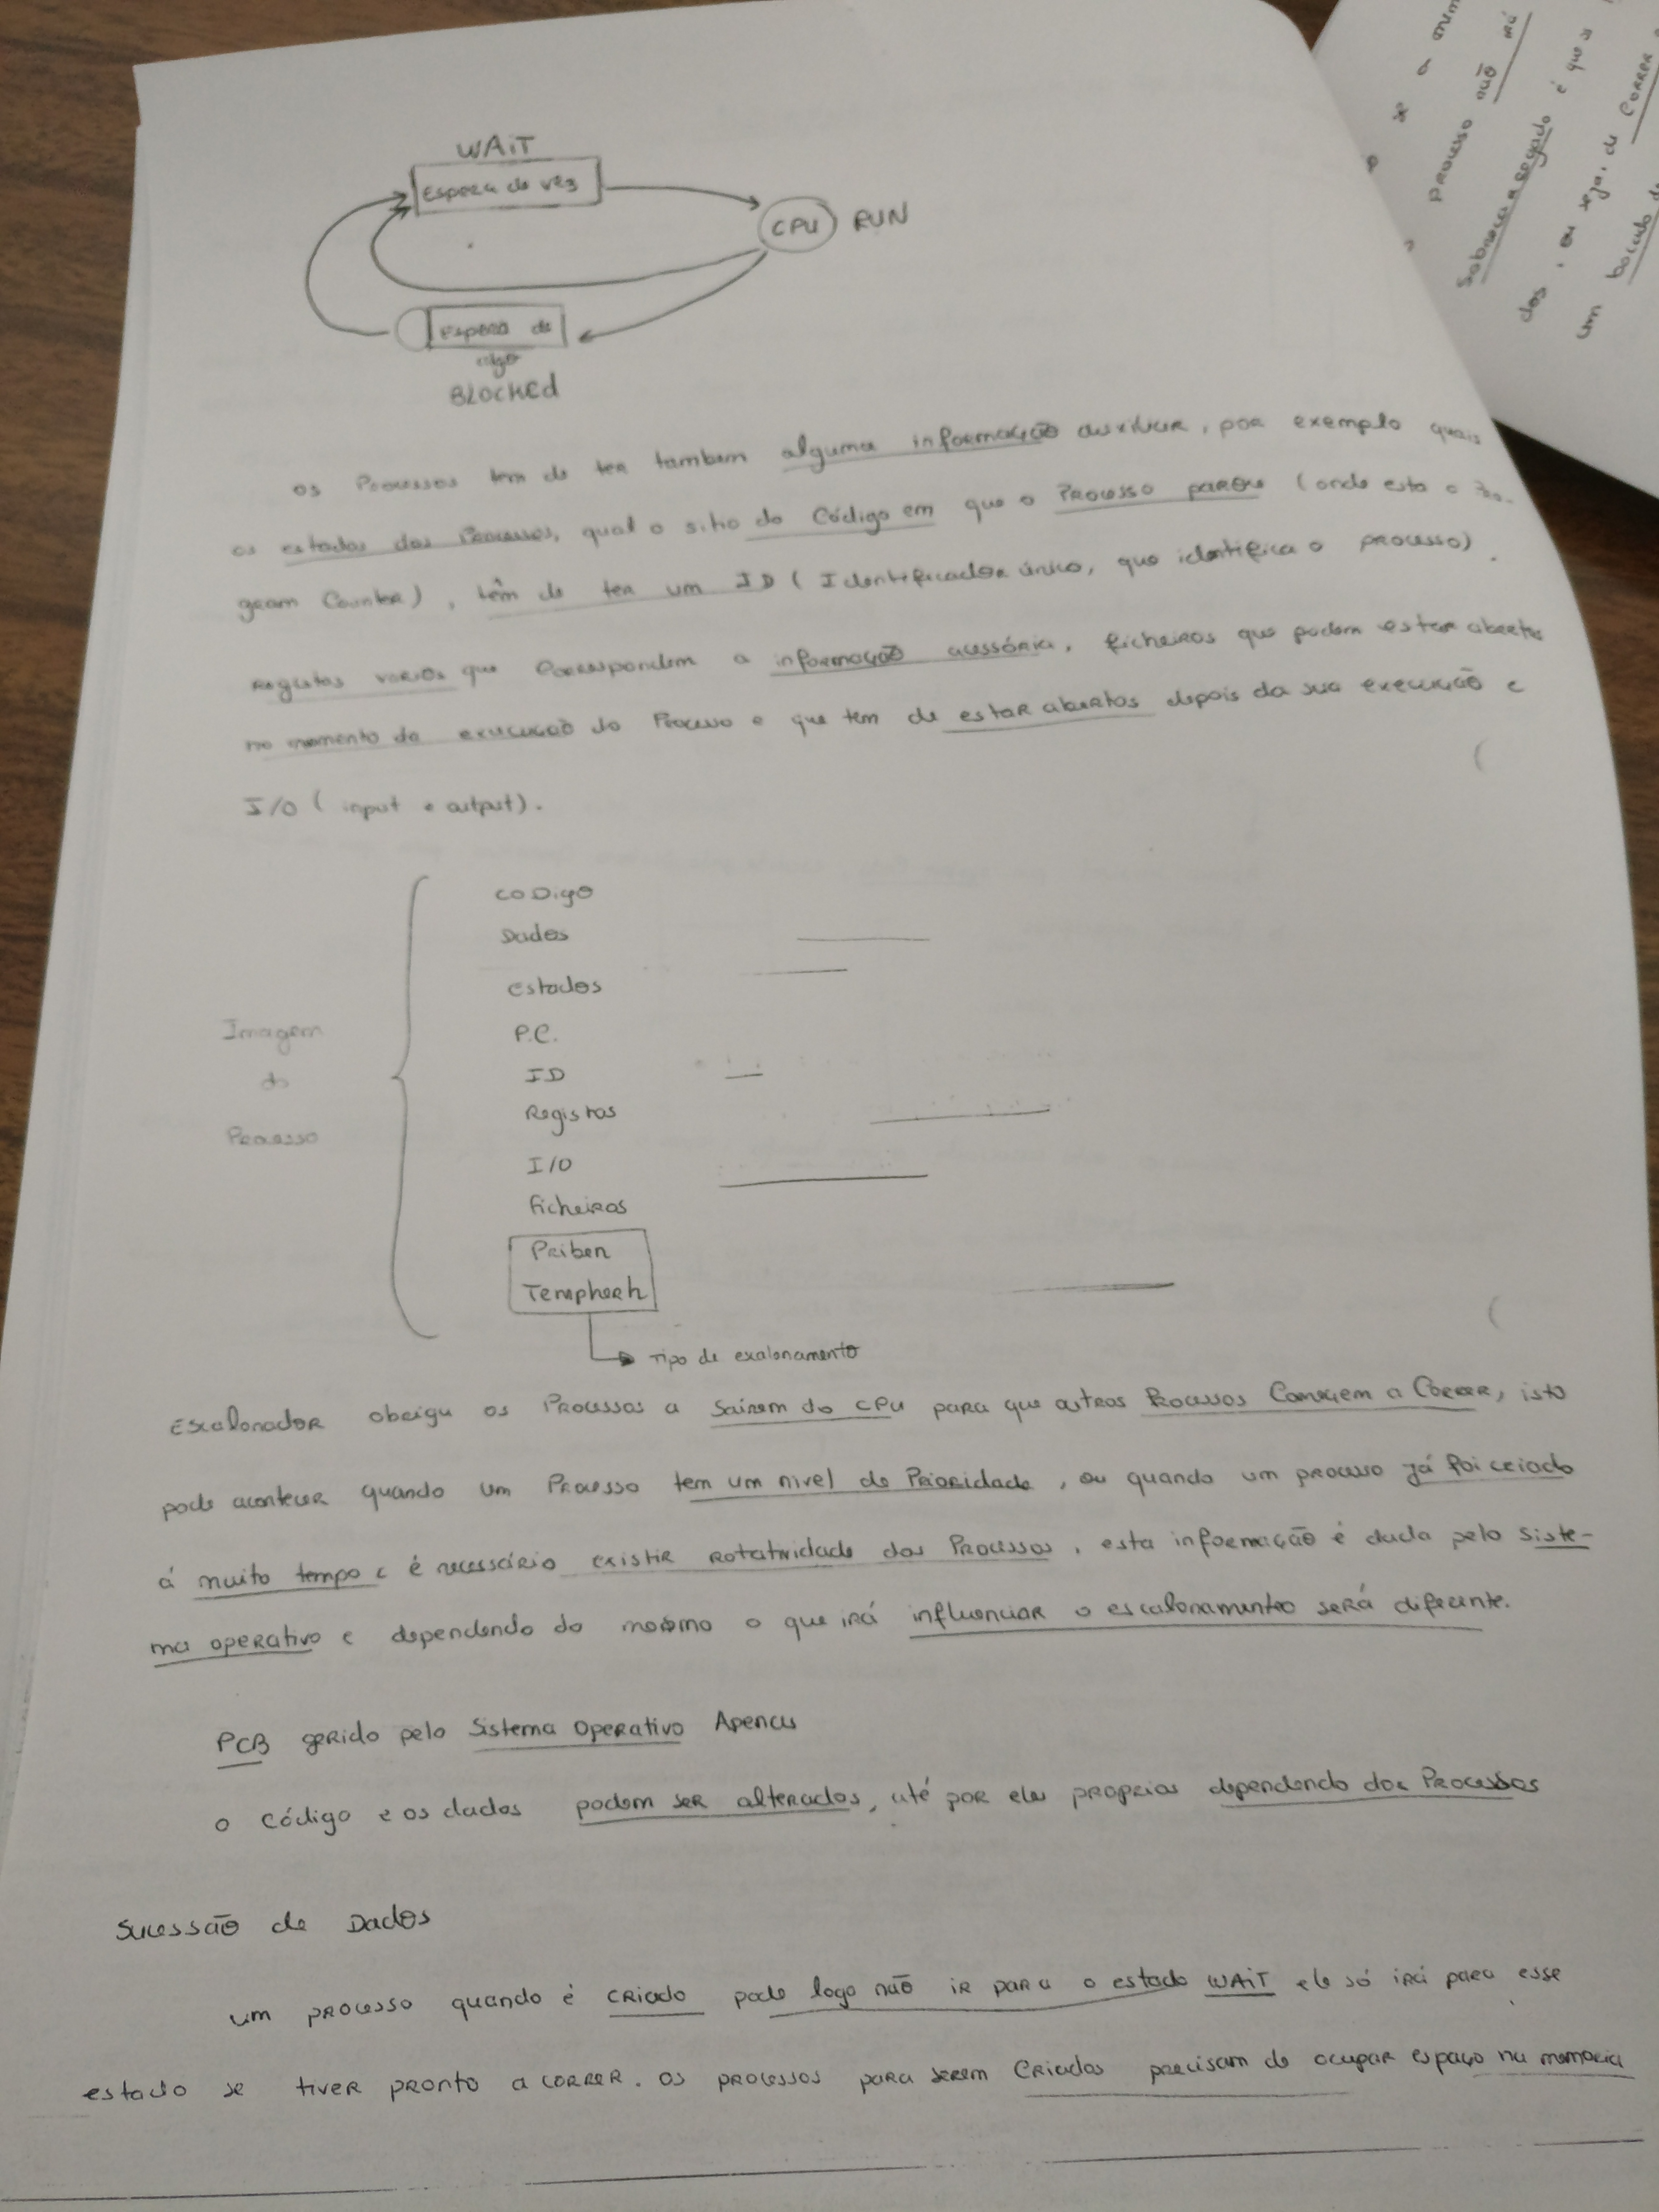 WAiT
Espera de vez
CPU RUN
Espera de
algo
BLOCKEd
os Processos tem de ter tambem alguma informação auxiliar, por exemplo quais
os estados dos Processos, qual o sitio do Código em que o Processo parou (onde esta o Pro-
gram Counter), têm de ter um ID (Identificador único, que identifica o processo).
registos varios que Correspondem a informação acessória, ficheiros que podem estar abertos
no momento de execucão do Processo e que tem de estar abertos depois da sua execução e
I/O (input e output).
Imagem
do
Processo
CODigo
Dados
Estados
P.C.
ID
Registos
I/O
ficheiros
Priben
Tempherh
Tipo de exalonamento
Escalonador obriga os Processos a Sairem do CPU para que outros Processos Começem a Correr, isto
pode acontecer quando um Processo tem um nivel de Prioridade, ou quando um processo já foi criado
á muito tempo e é necessário existir rotatividade dos Processos, esta informação é dada pelo siste-
ma operativo e dependendo do mesmo o que irá influenciar o escalonamento será diferente.
PCB gerido pelo Sistema Operativo Apenas
o Código e os dados podem ser alterados, até por eles proprios dependendo dos Processos
Sucessão de Dados
um processo quando é criado pode logo não ir para o estado WAiT ele só irá para esse
estado se tiver pronto a correr. os processos para serem Criados precisam de ocupar espaço na memoria
se a
processo não irá
é que os
dos, ou seja, de correr
um bocado